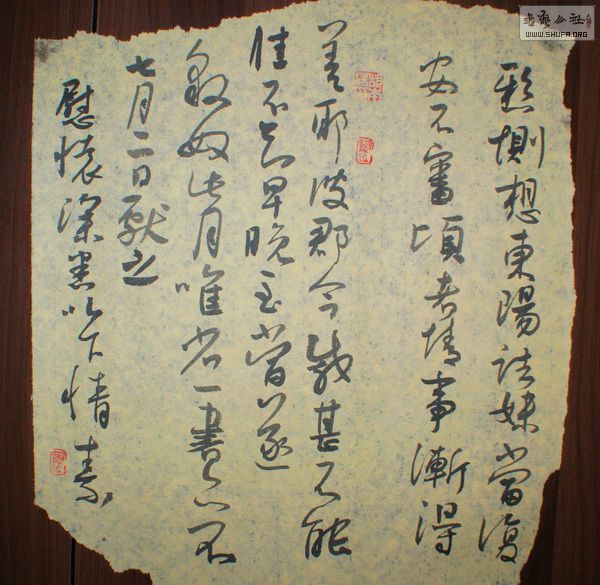 書藝公社
WWW.SHUFA.ORG
惻想東陽諸妹當復
安不審頃者情事漸得
差耶彼郡今載甚不能
佳不知早晚至當遂
奴比月唯省一書亦不
七月二日獻之
慰懷深下情素